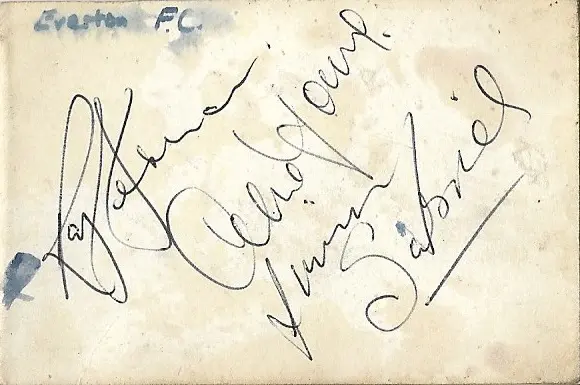 Everton F.C.
Roy Vernon
Alex Young.
Jimmy
Gabriel